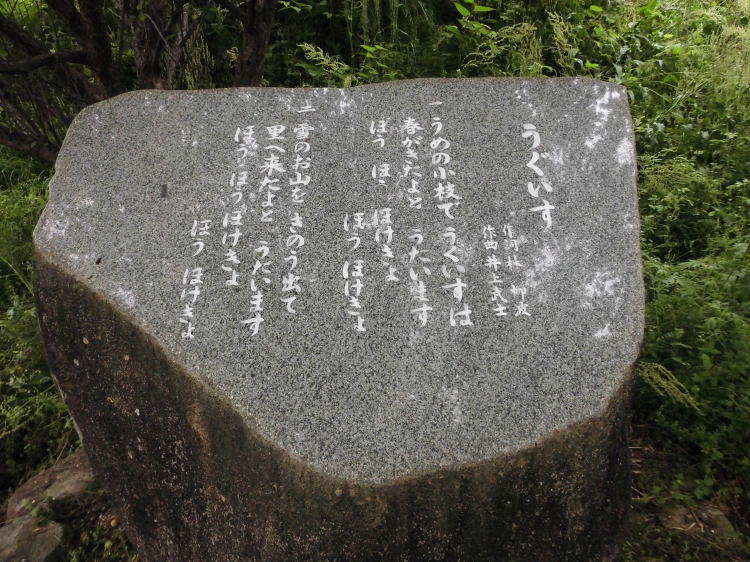 うぐいす
作詞 林 柳波
作曲 井上武士
一 うめの小枝で うぐいすは
春がきたよと うたいます
ほう ほう ほけきょ
ほう ほけきょ
二 雪のお山を きのう出て
里へ来たよと うたいます
ほう ほうほけきょ
ほう ほけきょ